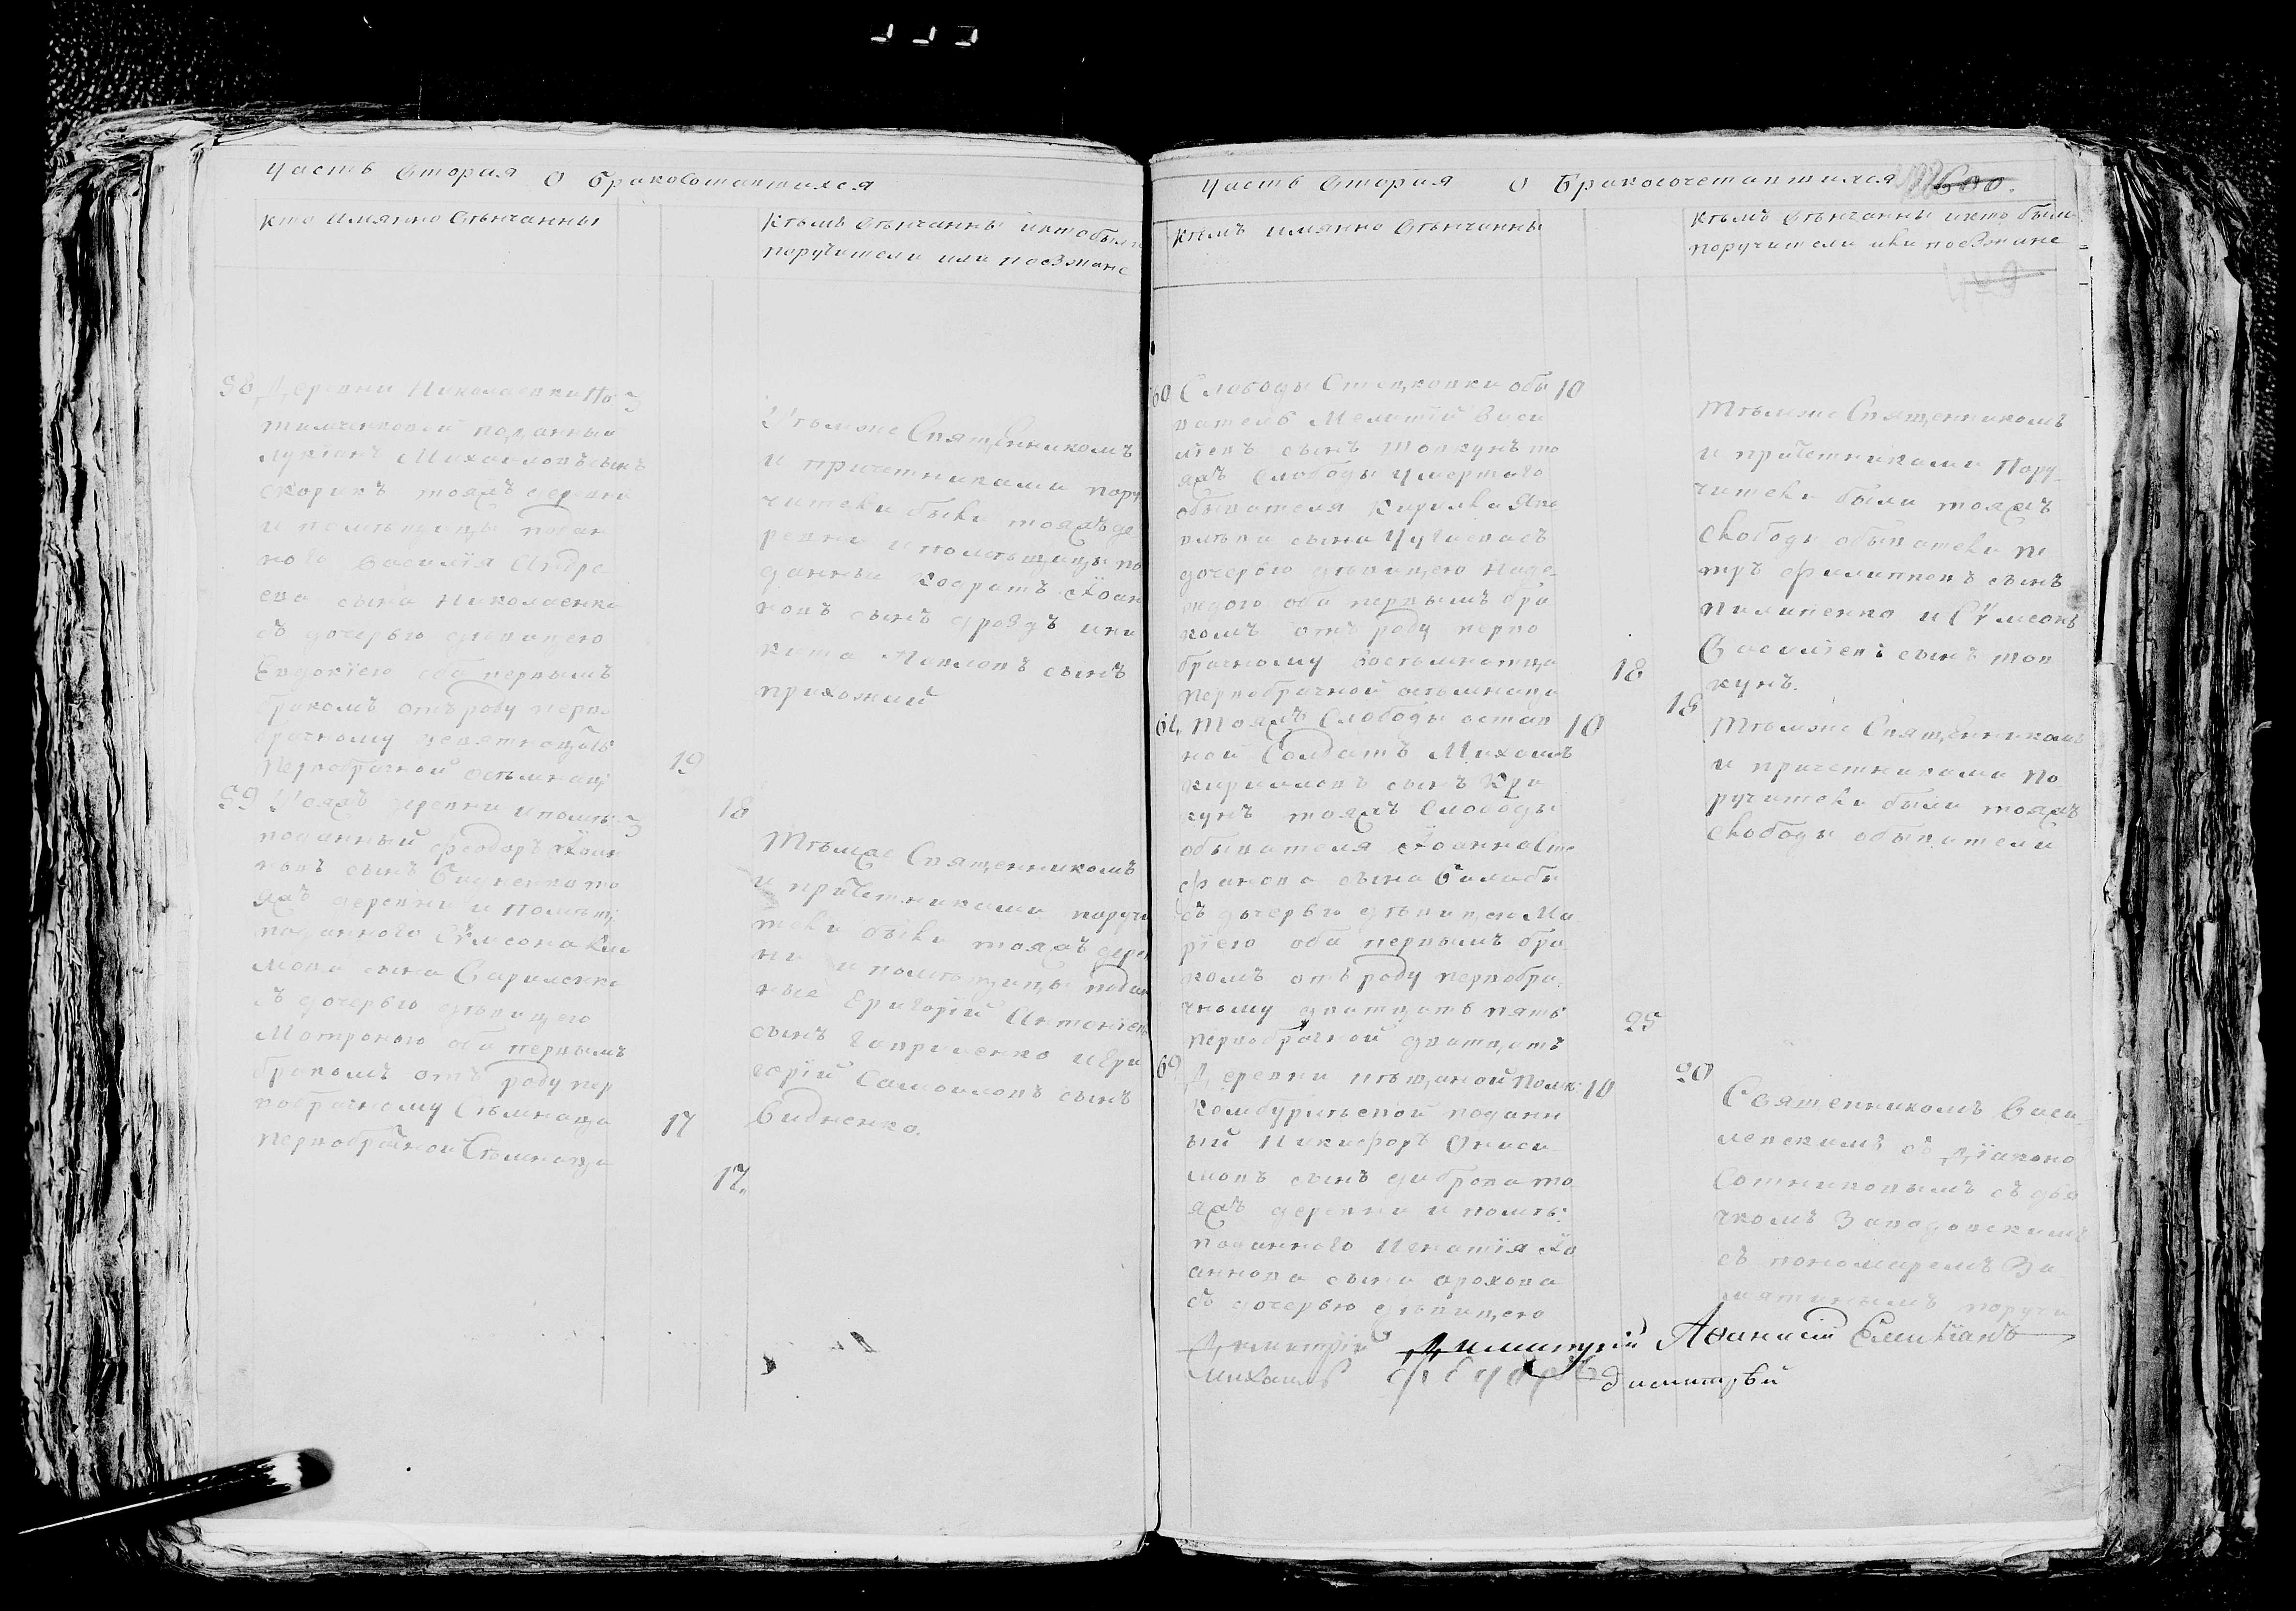 Часть Вторая О бракосотавшихся
кто имянно Вѣнчанны
Кѣмъ Вѣнчанны икто были
поручители или поезжане
58 Деревни Николаевки По 3
подданный
Лукіанъ Михаиловъ сынъ
скорикъ тояжъ деревни
и помѣщицы поддан
ного Василія Андре
ева сына Николаенка
съ дочерью дѣвицею
Евдокіею оба первымъ
бракомъ отъ роду перво
брачному девятнацать 19
первобрачной осѣмнац 18
Тѣмже Священникомъ
и причетниками пору
чители были тояжъ де
ревни и помѣщицы по
данныи Кодратъ Іоан
новъ сынъ дроздъ ини
кита Павловъ сынъ
прихожий
59 Тояжъ деревни и помѣ 3
поданный Феодоръ Іоан
новъ сынъ Бидненко то
яжъ деревни и помѣщ
поданного Сѵмеона Кли
мова сына Гавриленка
съ дочерью дѣвицею
Матроною оба первымъ
бракомъ отъ роду пер
вобрачному Сѣмнаца 17
первобрачной Сѣмнаца 17.
Тѣмже Священникомъ
и причетниками поручи
тели были тояжъ дерев
ни и помѣщицы подан
ные Григорій Антоніевъ
сынъ Гавриленко и Гри
горій Самоиловъ сынъ
Бидненко.
Часть Вторая О Бракосочетавшихся 600.
Кѣмъ имянно Вѣнчанны
Кѣмъ Вѣнчанны икто были
поручители или поезжане
60 Слободы Стецковки обы 10
ватель Мелетій Васи
лієвъ сынъ Товкунъ то
яжъ Слободы умершаго
обывателя Кирила Яко
влева сына
дочерью дѣвицею Наде
ждою оба первымъ бра
комъ отъ роду перво
брачному восѣмнатца 18
первобрачной осѣмнаца 18
Тѣмже Священникомъ
и причетниками Пору
чители были тояжъ
слободы обыватели пе
тръ Филипповъ сынъ
пилипенко и Сѵмеонъ
Василіевъ сынъ тов
кунъ.
61 Тояжъ Слободы остав 10
ной Солдатъ Михаилъ
Кирилловъ сынъ Кри
кунъ тояжъ Слободы
обывателя Іоанна Сте
фанова сына Балабы
съ дочерью дѣвицею Ма
рїею оба первымъ бра
комъ отъ роду первобра
чному дватцать пять 25
первобрачной дватцать 20
Тѣмже Священникомъ
и причетниками По
ручители были тояжъ
слободы обыватели
62 Деревни пѣщаной Полк: 10
Комбурлѣевой поданн
ый Никифоръ Ониси
мовъ сынъ диброва то
яжъ деревни и помѣ:
поданного Игнатія Іо
аннова сына орохова
съ дочерью дѣвицею
Священникомъ Васи
левскимъ съ Діаконо
Сотниковымъ съ дья
чкомъ Заводовскимъ
съ пономаремъ За
мятинымъ поручи
Димитрій Димитрій Аѳанасій Емилїанъ
Михаилъ Ѳеодоръ димитрѣй